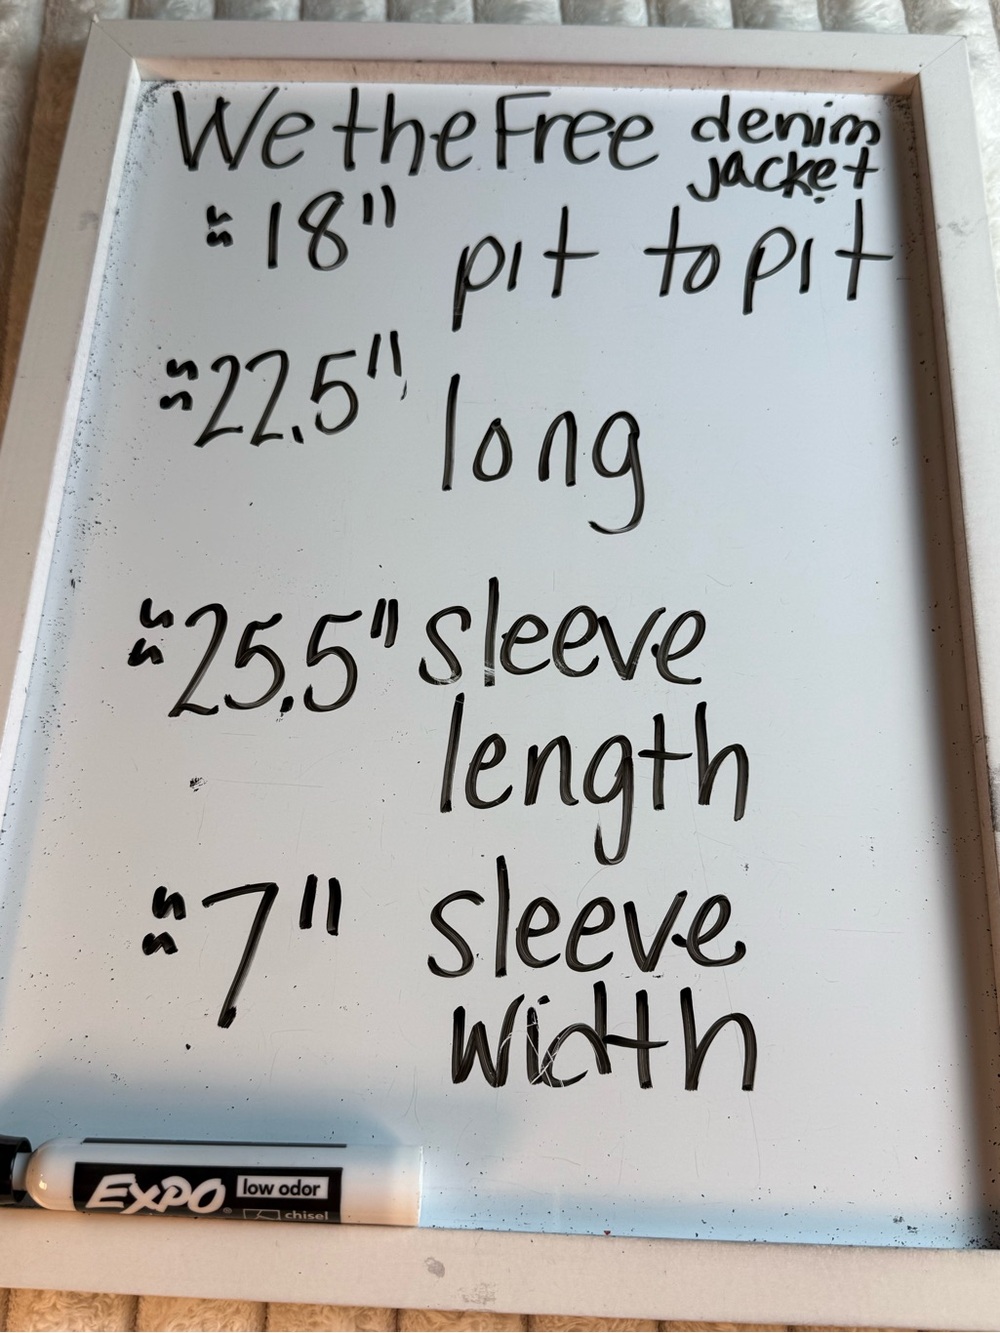 We the Free denim
jacket
≈18" pit to pit
≈22.5" long
≈25.5" sleeve
length
≈7" sleeve
width
EXPO low odor
chisel